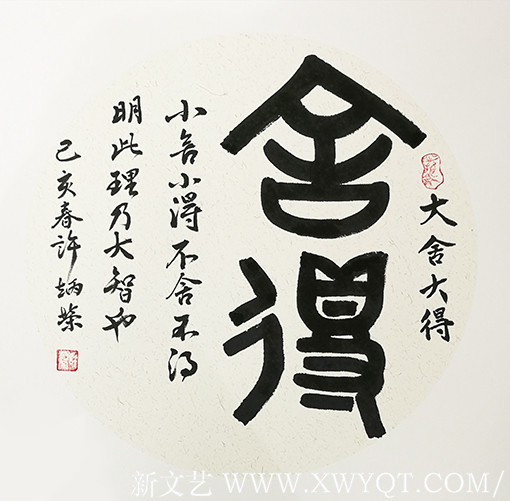 大舍大得
舍得
小舍小得不舍不得
明此理乃大智也
己亥春許炳榮
新文艺 WWW.XWYQT.COM/